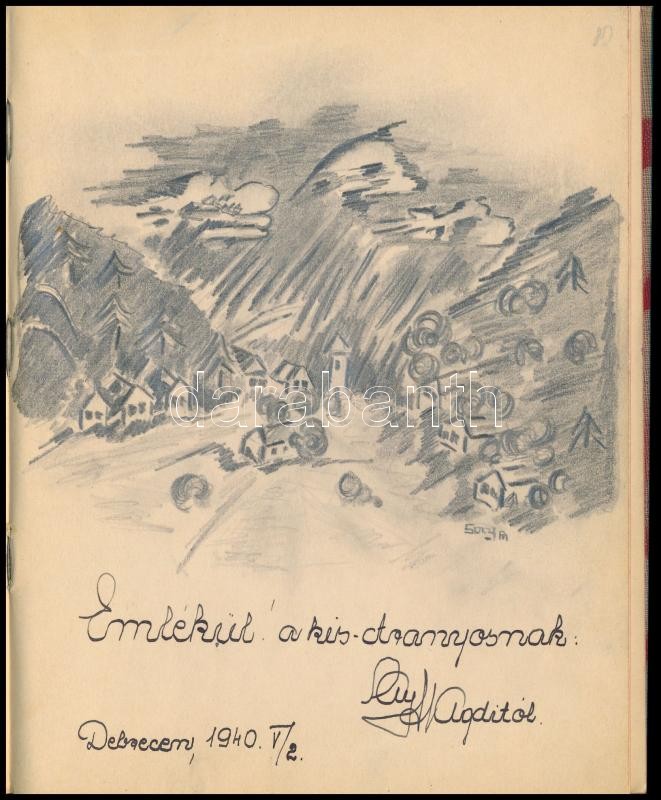 80
darabanth
Emlékül! a kis-Aranyosnak:
Magditól.
Debrecen, 1940. V/2.